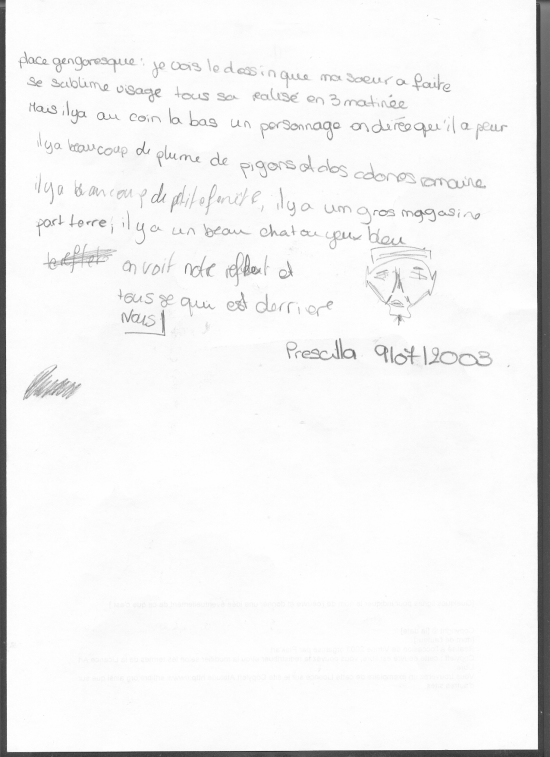 place gengoresque : je vois le dessin que ma soeur a faite
se sublime visage tous sa realisé en 3 matinée
Mais il ya au coin la bas un personnage on dirée qu'il a peur
il ya beaucoup de plume de pigons et des colones romaine
il y a beaucoup de ptite fenête, il y a um gros magasine
part terre, il y a un beau chat au yeux bleu
on voit notre reflent et
tous se qui est derriere
Nous !
Prescilla 9/07/2003